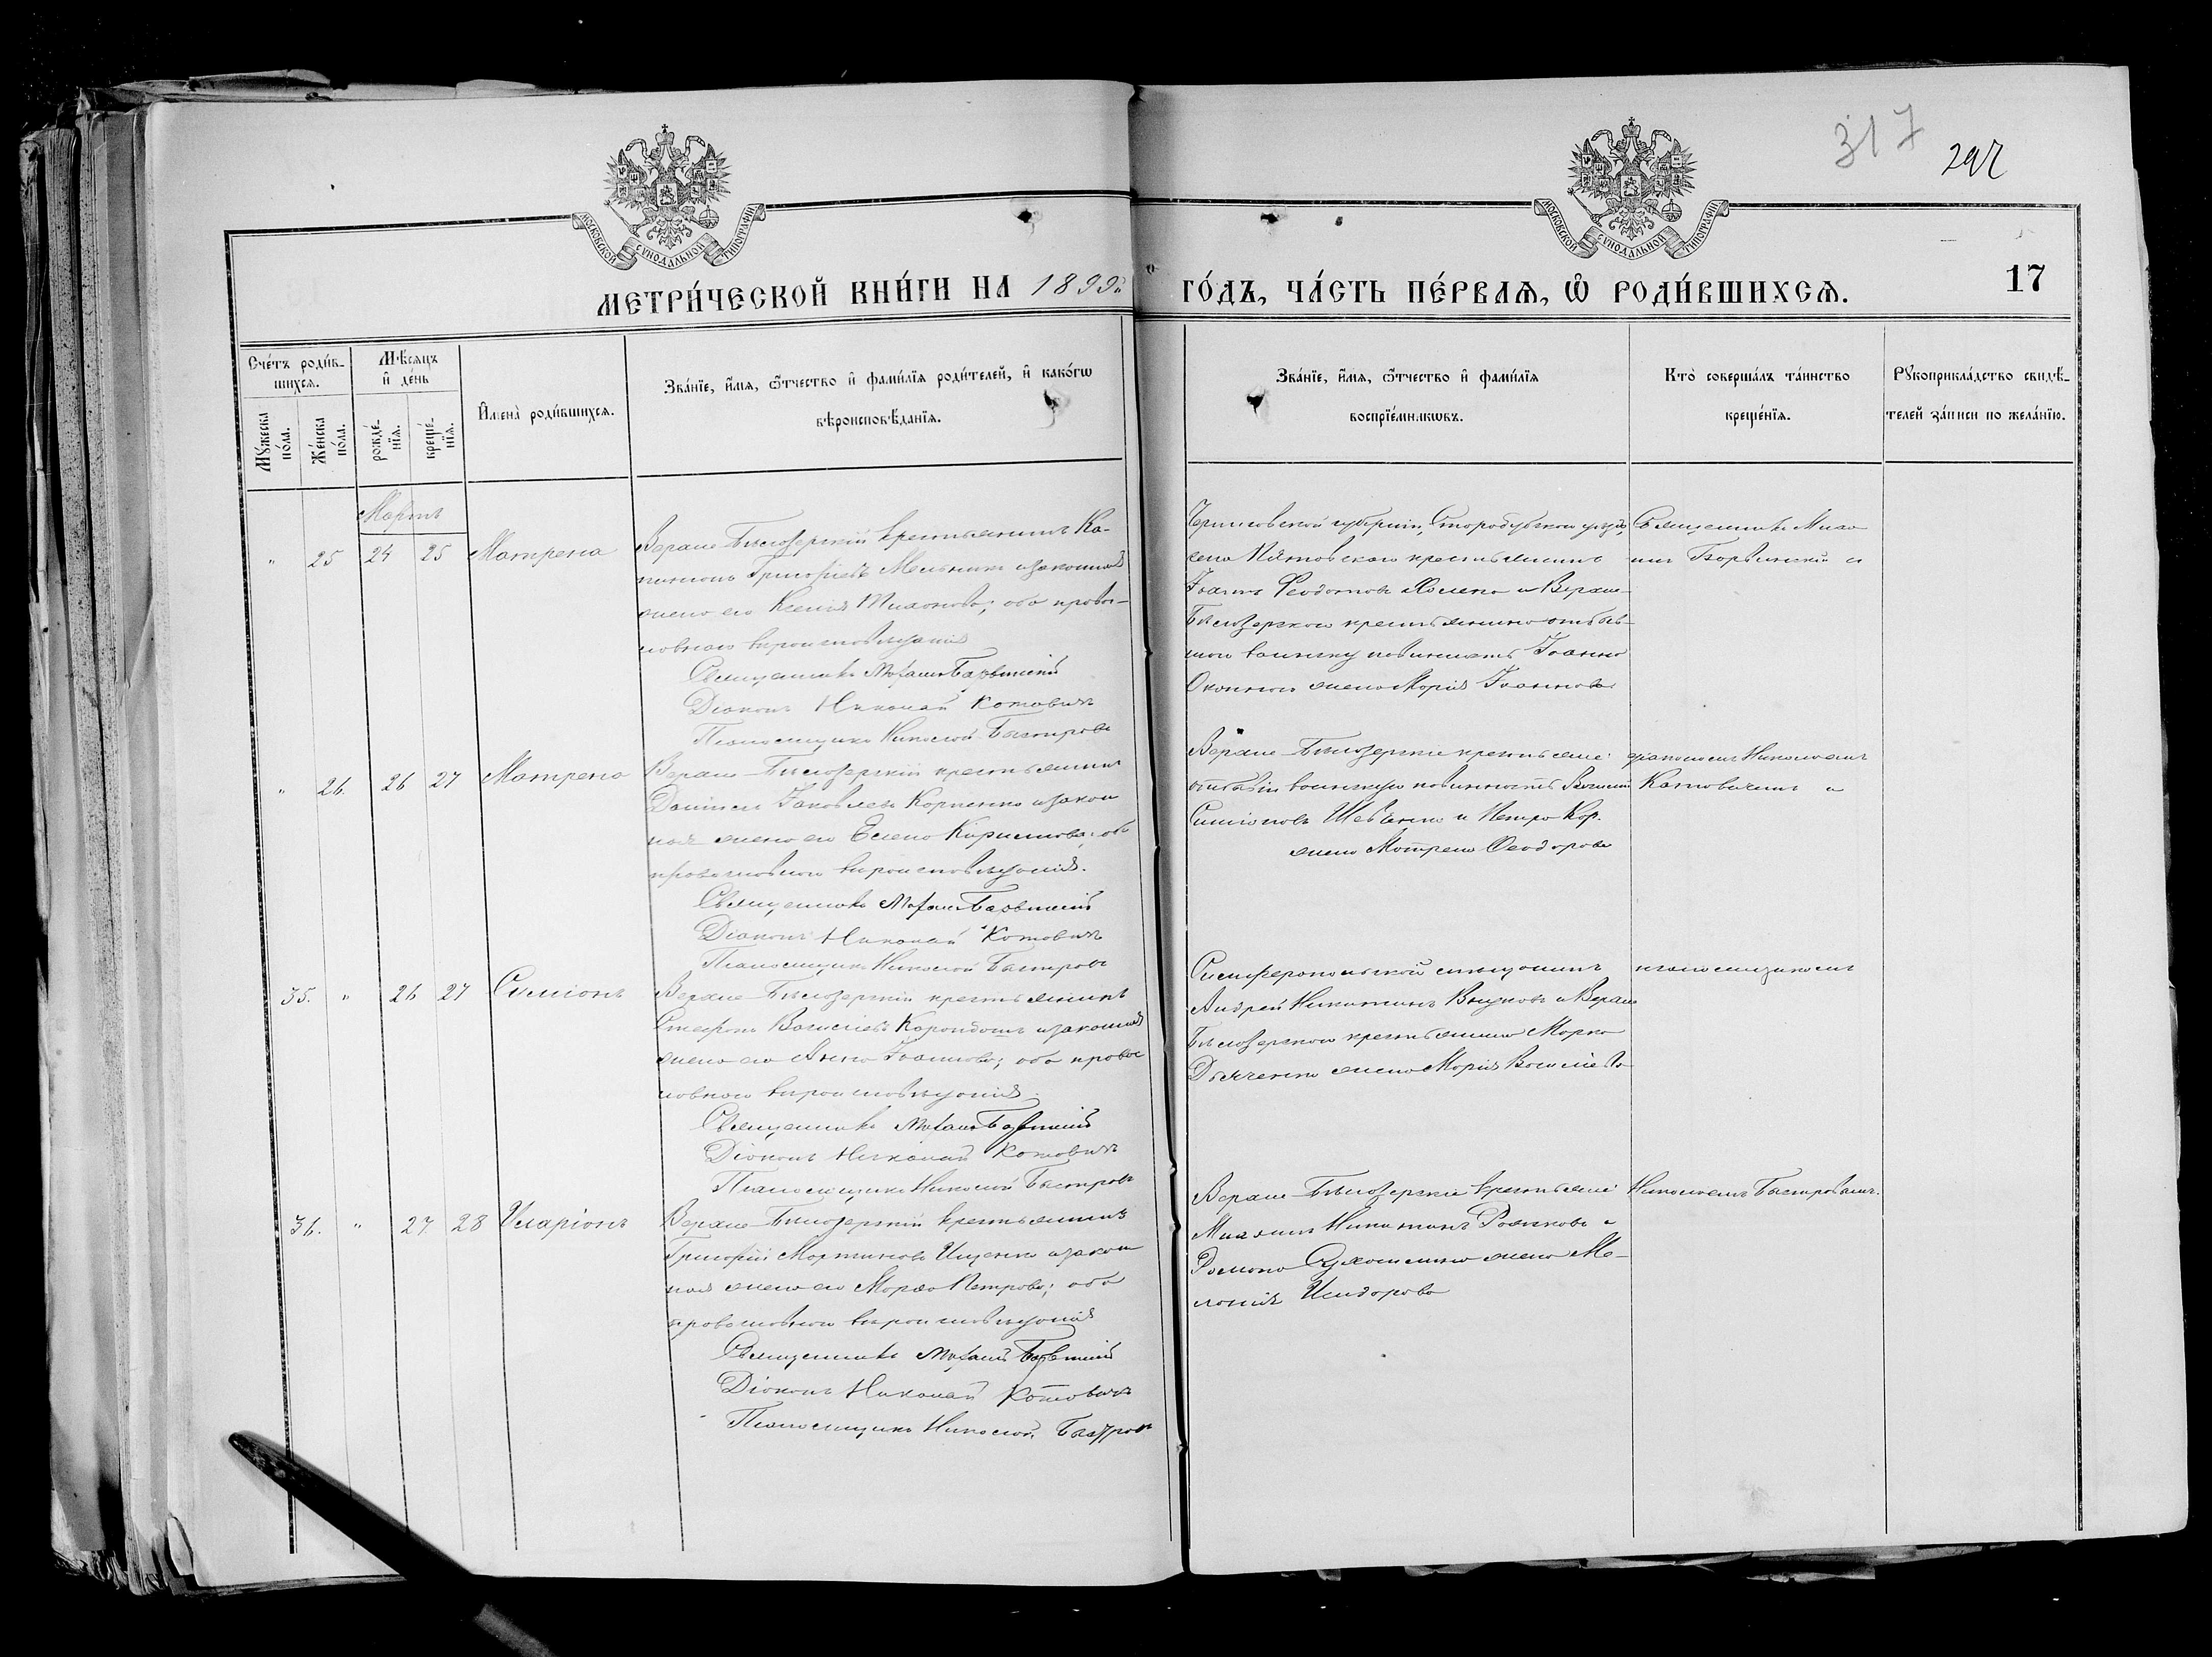 317
297
МОСКОВСКОЙ СѴНОДАЛЬНОЙ ТИПОГРАФІИ
МОСКОВСКОЙ СѴНОДАЛЬНОЙ ТИПОГРАФІИ
МЕТРИ́ЧЕСКОЙ КНИ́ГИ НА 1899й ГО́ДЪ, ЧА́СТЬ ПЕ́РВАЯ, Ѽ РОДИ́ВШИХСЯ. 17
Сче́тъ роди́в-
шихся.
Мꙋ́жеска по́ла.
Же́нска по́ла.
Мѣ́сяцъ и҆ де́нь
рожде́-нїя.
креще́-нїя.
И҆мена̀ роди́вшихся.
Зва́нїе, и҆́мя, ѻ҆́тчество и҆ фами́лїя роди́телей, и҆ како́гѡ
вѣроисповѣ́данїя.
Зва́нїе, и҆́мя, ѻ҆́тчество и҆ фами́лїя
воспрїе́мникѡвъ.
Кто̀ соверша́лъ та́инство
креще́нїя.
Рꙋкоприкла́дство свидѣ́-
телей за́писи по жела́нїю.
Мартъ
" 25 24 25 Матрена
Верхне-Бѣлозерскій крестьянинъ Ка-
питонъ Григоріевъ Мельникъ и законная
жена его Ксенія Тихонова; оба правос-
лавнаго вѣроисповѣданія
Священникъ Михаилъ Барвинскій
Діаконъ Николай Котовичъ
Псаломщикъ Николай Быстровъ
Черниговской губерніи, Стародубскаго уѣзда,
села крестьянинъ
Іоаннъ Феодотовъ и Верхне-
Бѣлозерскаго крестьянина отбыв-
шаго воинскую повинность Іоанна
жена Марія Іоаннова
Священникъ Миха-
илъ Барвинскій и
" 26. 26 27 Матрена
Верхне-Бѣлозерскій крестьянинъ
Даніилъ Іаковлевъ Корненко и закон
ная жена его Елена Кириллова; оба
православнаго вѣроисповѣданія.
Священникъ Михаилъ Барвинскій
Діаконъ Николай Котовичъ
Псаломщикъ Николай Быстровъ
Верхне-Бѣлозерскіе крестьяне:
отбывшій воинскую повинность
Симіоновъ Шевченко и Петра Кор.
жена Матрена Феодорова
діакономъ Николаемъ
Котовичемъ и
35. " 26 27 Симіонъ
Верхне-Бѣлозерскій крестьянинъ
Стефанъ Василіевъ и законная
жена его Анна Іоаннова; оба правос
лавнаго вѣроисповѣданія.
Священникъ Михаилъ Барвинскій
Діаконъ Николай Котовичъ
Псаломщикъ Николай Быстровъ
Симферопольской мѣщанинъ
Андрей Никитинъ Внуковъ и Верхне
Бѣлозерскаго крестьянина Марка
Дьяченко жена Марія Василіева
псаломщикомъ
36. " 27 28 Иларіонъ
Верхне-Бѣлозерскій крестьянинъ
Григорій Мартиновъ Ищенко и закон
ная жена его Марѳа Петрова; оба
православнаго вѣроисповѣданія
Священникъ Михаилъ Барвинскій
Діаконъ Николай Котовичъ
Псаломщикъ Николай Быстровъ
Верхне-Бѣлозерскіе крестьяне
Михаилъ Никитинъ и
Романа жена Ме-
ланія Исидорова
Николаемъ Быстровымъ.